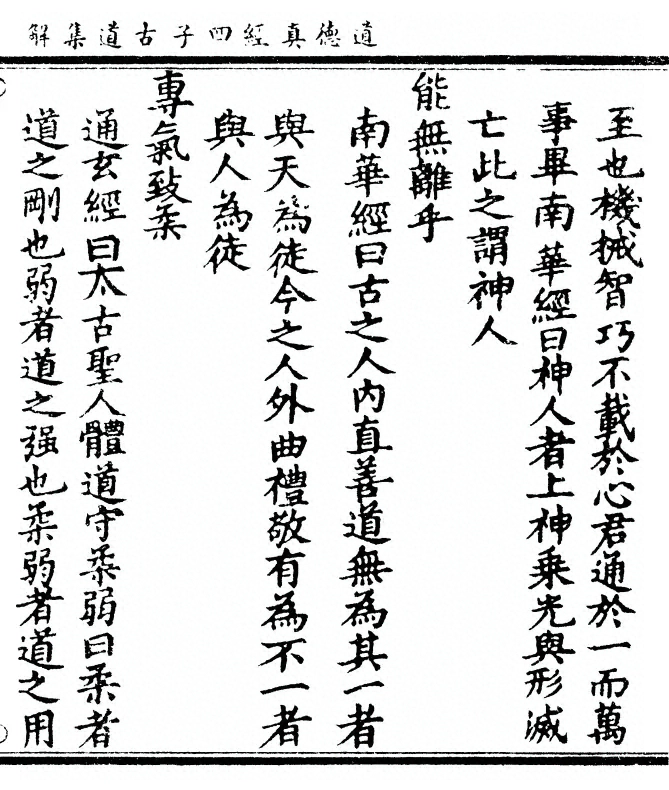 道德真經四子古道集解
至也機械智巧不載於心君通於一而萬
事畢南華經曰神人者上神乘光與形滅
亡此之謂神人
能無離乎
南華經曰古之人內直善道無為其一者
與天為徒今之人外曲禮敬有為不一者
與人為徒
專氣致柔
通玄經曰太古聖人體道守柔弱曰柔者
道之剛也弱者道之强也柔弱者道之用